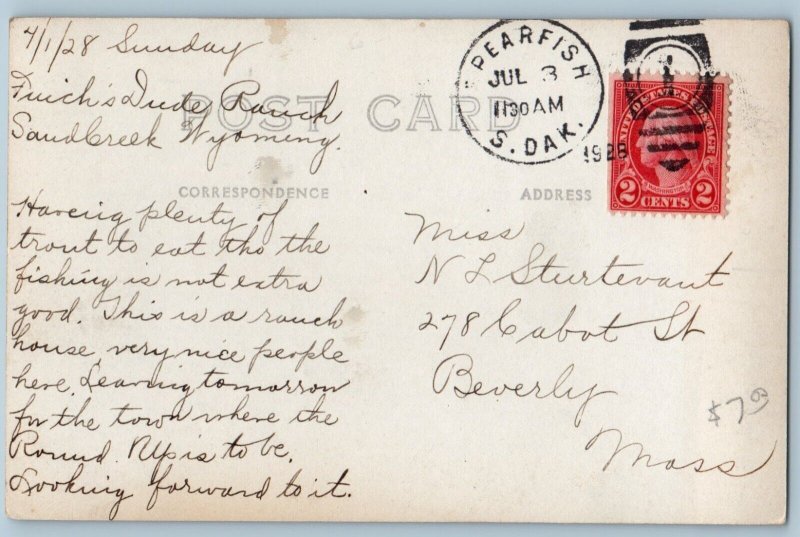 7/1/28 Sunday
Frich's Dude Ranch
Sand Creek Wyoming.
POST CARD
CORRESPONDENCE
ADDRESS
Having plenty of
trout to eat tho the
fishing is not extra
good. This is a ranch
house, very nice people
here. Leaving tomorrow
for the town where the
Round Up is to be.
Looking forward to it.
SPEARFISH
JUL 3
1130 AM
S. DAK.
1928
UNITED STATES POSTAGE
WASHINGTON
2 CENTS 2
Miss
N L Sturtevant
278 Cabot St
Beverly
Mass
$7.00